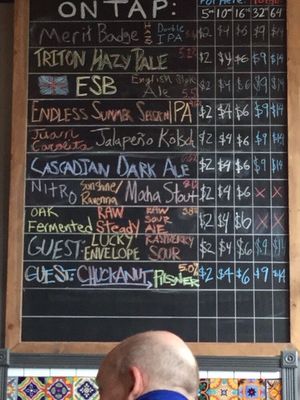 ON TAP: For Here: ToGo:
5oz 10oz 16oz 32oz 64
Merit Badge Double IPA $2 $4 $6 $9 $14
TRITON HAZY PALE $2 $4 $6 $9 $14
ESB English Style Ale $2 $4 $6 $9 $14
ENDLESS SUMMER SESSION IPA $2 $4 $6 $9 $14
Jalapeño Kölsch $2 $4 $6 $9 $14
CASCADIAN DARK ALE $2 $4 $6 $9 $14
NITRO Sunshine/ Mocha Stout $2 $4 $6 X X
OAK Fermented RAW Steady RAW SOUR ALE $2 $4 $6 X X
GUEST: LUCKY ENVELOPE RASPBERRY SOUR $2 $4 $6 $9 $14
GUEST: CHUCKANUT PILSNER 5.0% $2 $4 $6 $9 $14